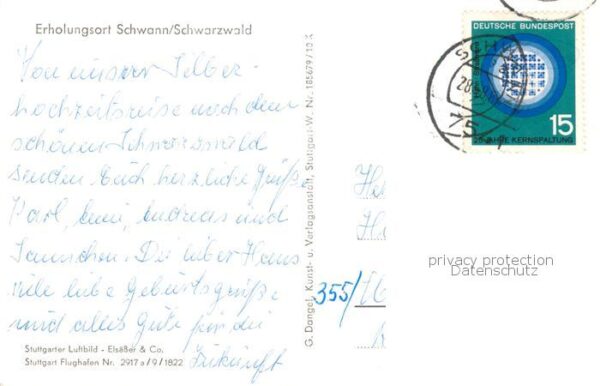 Erholungsort Schwann/Schwarzwald
Von unserer Silber-
hochzeitsreise nach dem
schönen Schwarzwald
senden Euch herzliche Grüße
Karl, Andreas und
Dir lieber Hans
viele liebe Geburtsgrüße
und alles Gute für die
Zukunft
Stuttgarter Luftbild - Elsäßer & Co.
Stuttgart Flughafen Nr. 2917 a / 9 / 1822
G. Dangel, Kunst- u. Verlagsanstalt, Stuttgart-W. Nr. 185679 / 10
355/
DEUTSCHE BUNDESPOST
15
25 JAHRE KERNSPALTUNG
privacy protection
Datenschutz